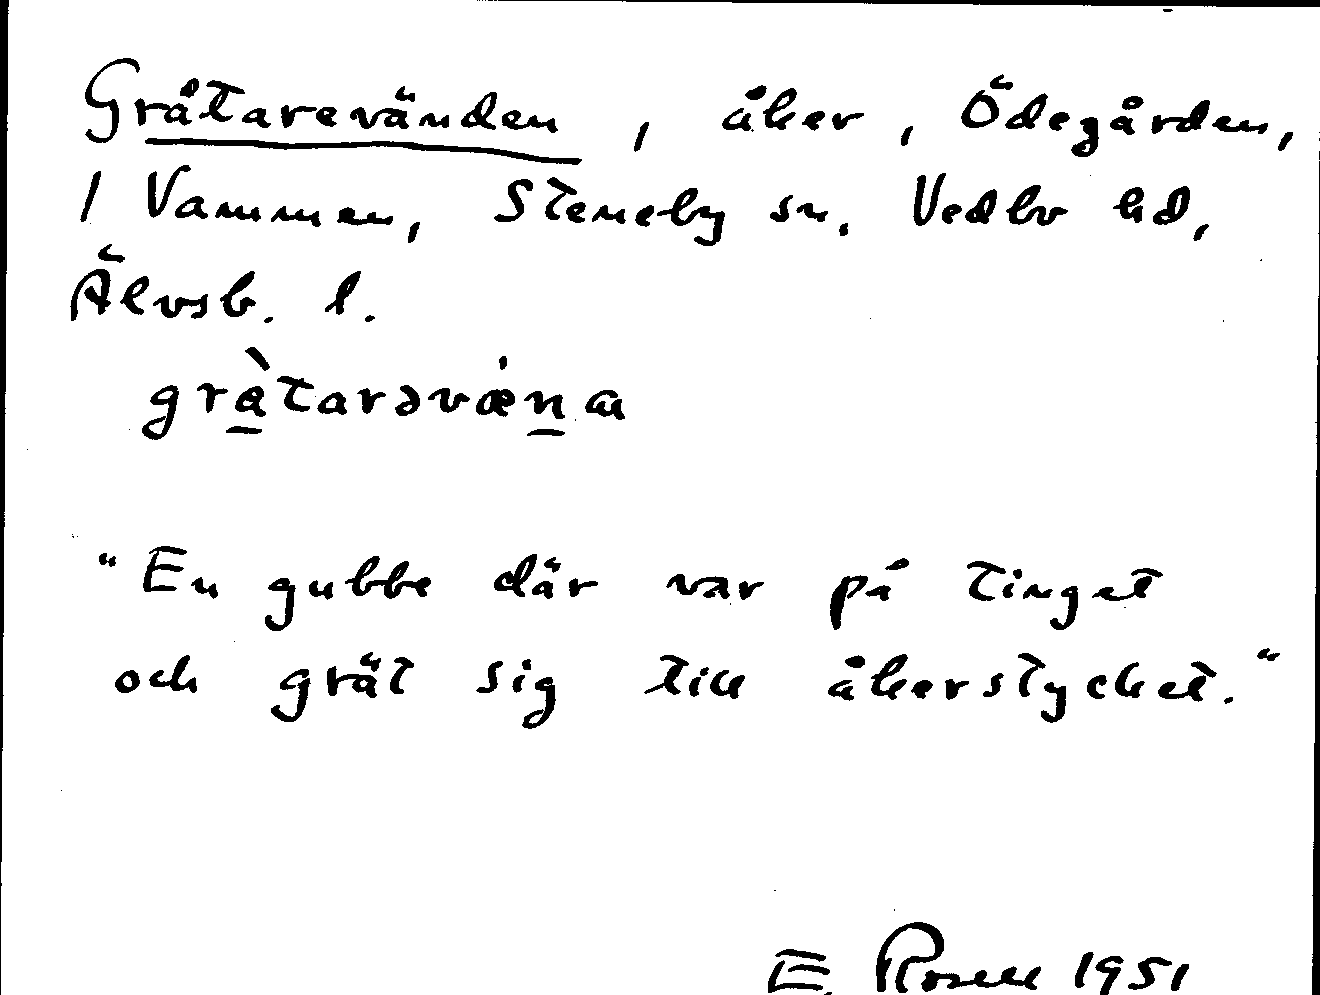 Gråtarevänden, åker, Ödegården,
1 Vammen, Steneby sn. Vedbo hd,
Älvsb. l.
gràtarəvæ̇na
"En gubbe där var på tinget
och grät sig till åkerstycket."
E. Rosell 1951